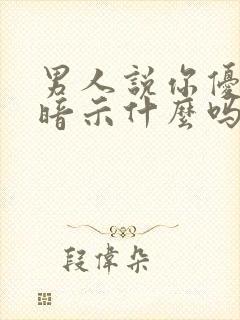 男人說你優
暗示什麼嗎
段偉朵